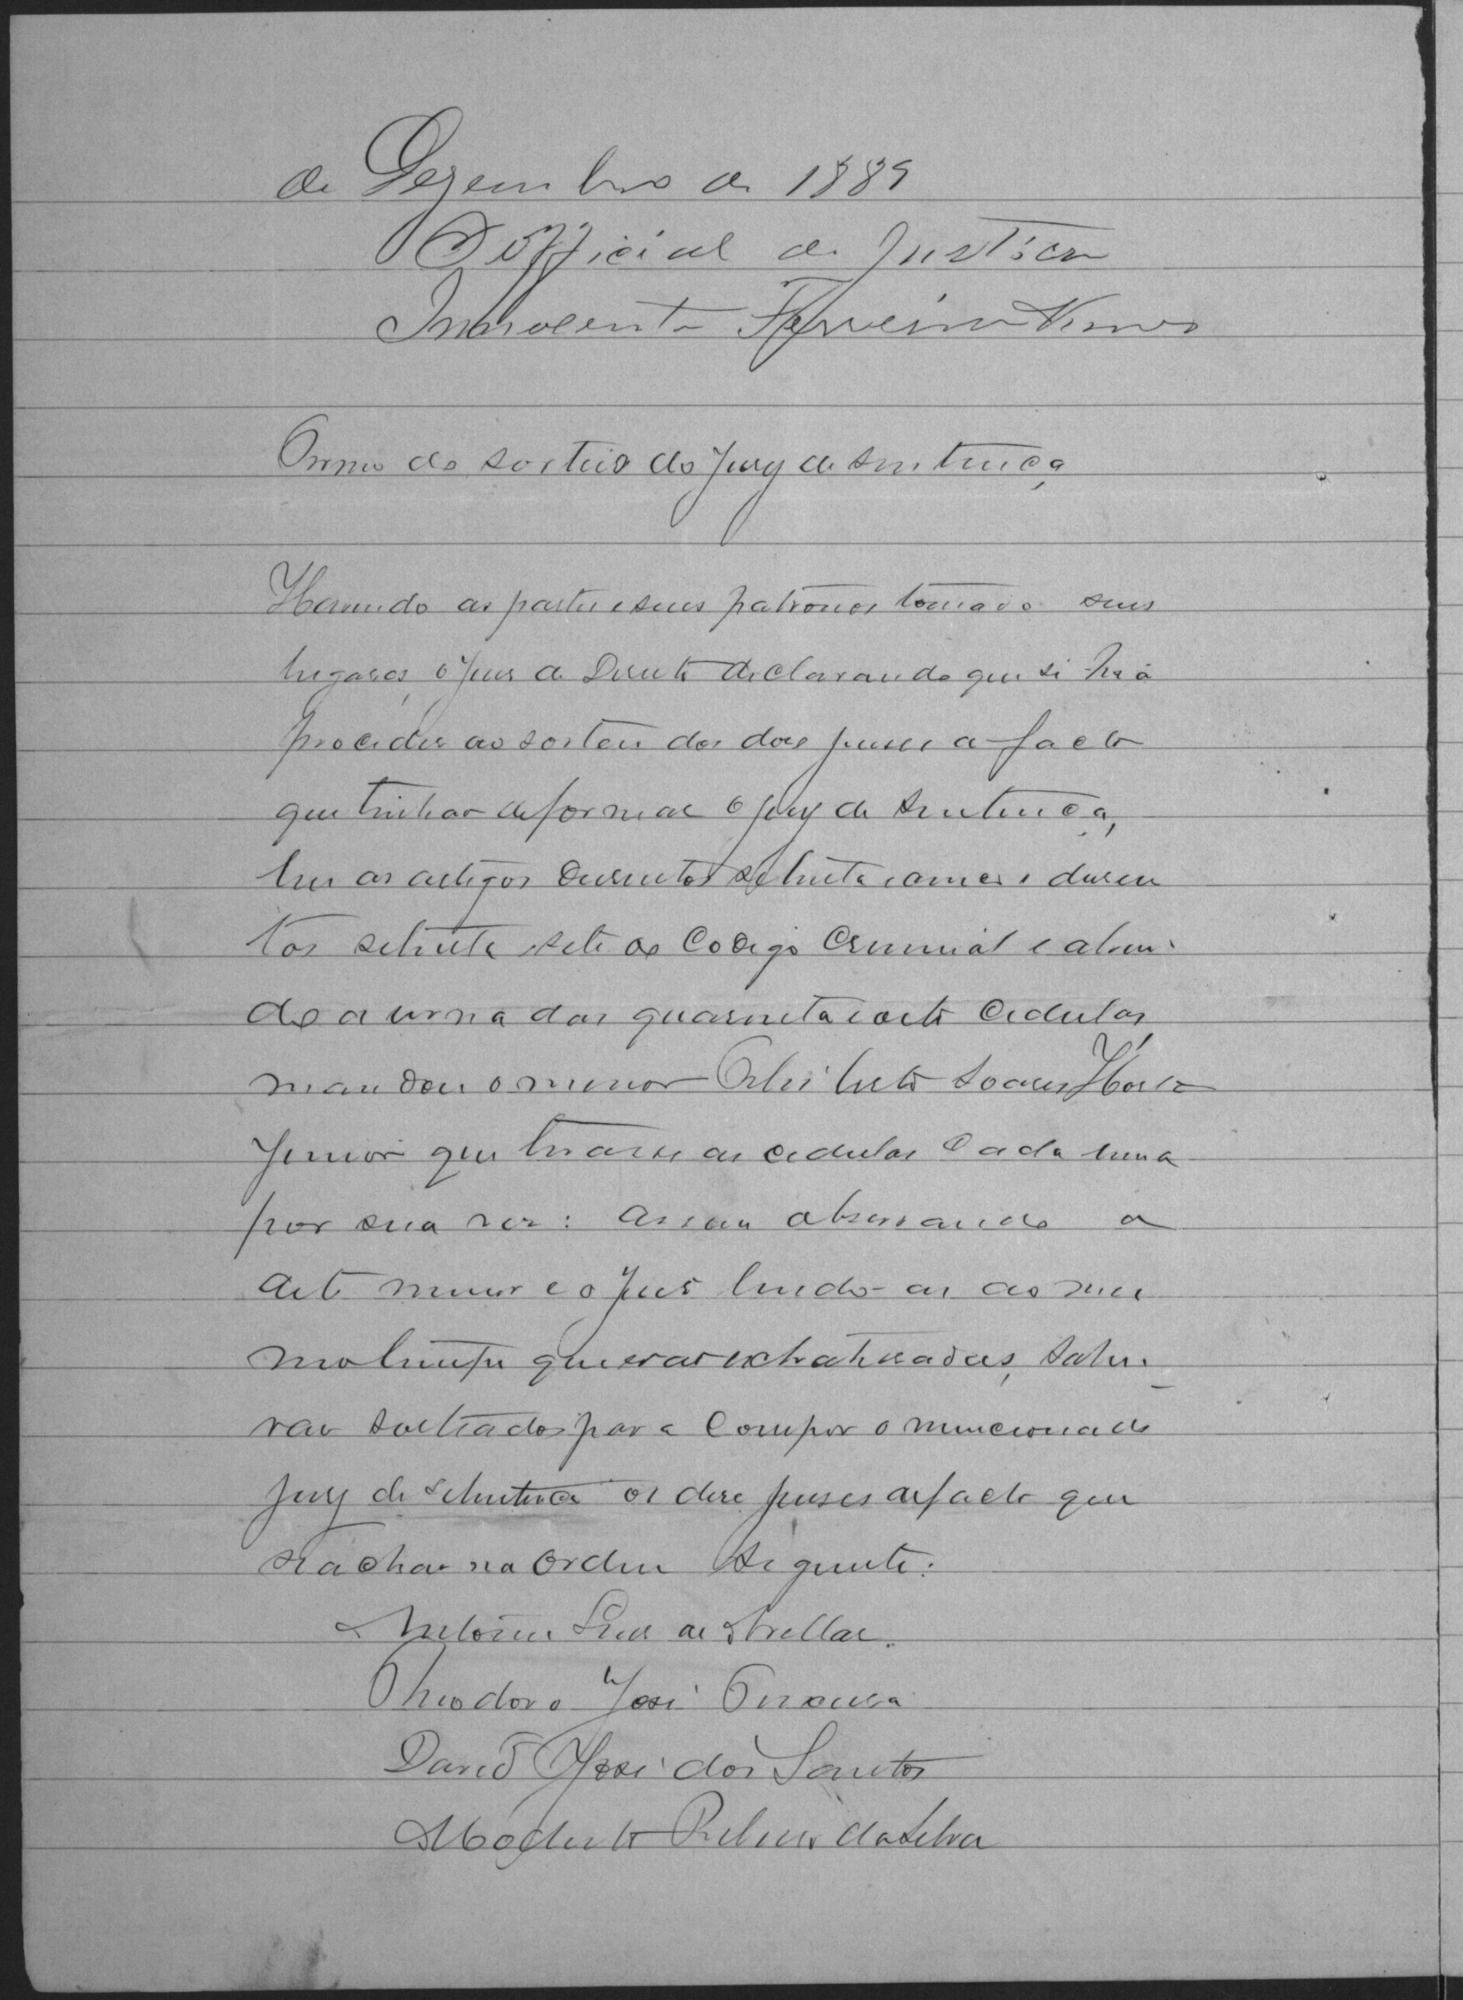 de Dezembro de 1889
O Official de Justiça
Innocente Ferreira
Termo do sorteio do Jury de sentença
Havendo as partes e seus patronos tomado seus
lugares, o Juis de Direito declarando que si hia
proceder ao sorteio dos dose juises de facto
que tinhão de formar o jury de sentença,
leu os artigos duzentos setenta e duzen
tos setenta sete do Codigo Criminal e abrin
do a urna das quarenta e oito cedulas,
mandou o menor Soares Horta
Junior que tirasse as cedulas cada uma
por sua vez: assim observando o
dito menor e o Juis lendo-as ao mes
mo tempo que erão extrahidas, sahi
rão sorteados para compor o mencionado
jury de sentença os dose juises de facto que
se achão na ordem seguinte:
Antonio Luis de
Theodoro José
David José dos Santos
Modesto Ribeiro da Silva